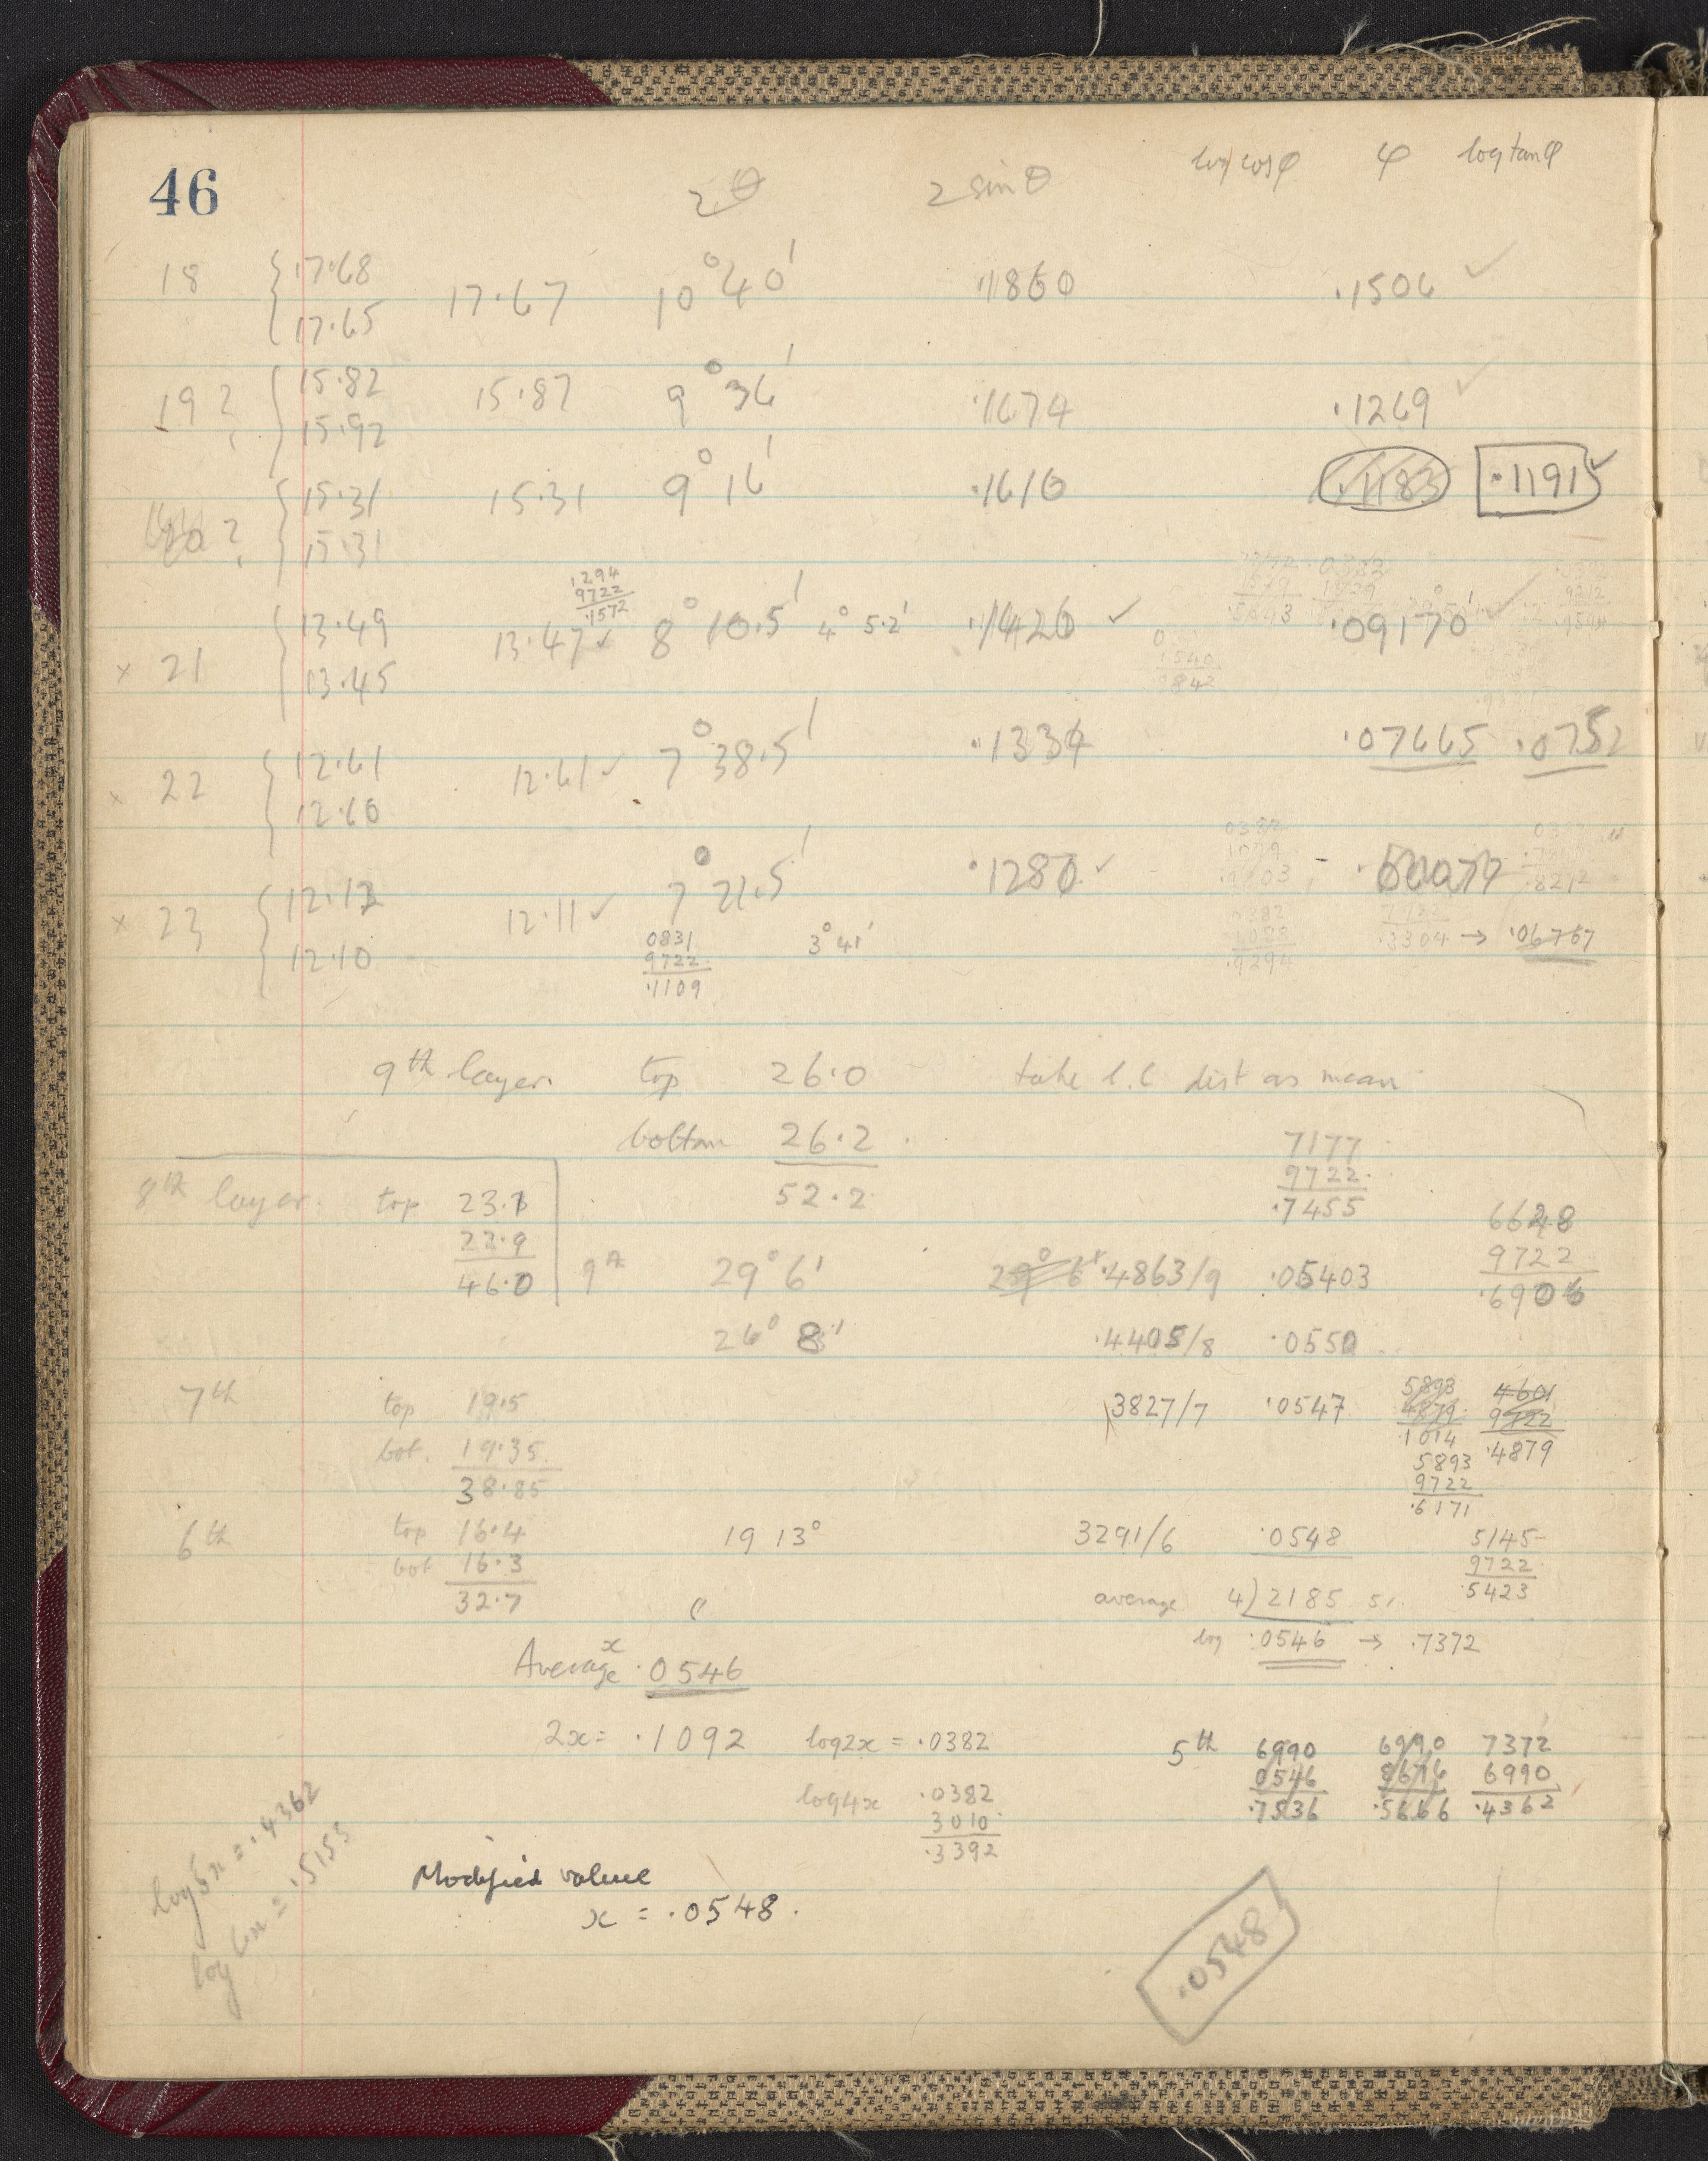 46
2θ 2 sin θ log cos φ φ log tan φ
18 { 17.68 17.67 10° 40' .1860 .1506 ✓
17.65
19 ? { 15.82 15.87 9° 36' .1674 .1269 ✓
15.92
20 ? { 15.31 15.31 9° 16' .1610 .1183 .1191 ✓
15.31
1294
9722
.1572
x 21 { 13.49 13.47 ✓ 8° 10.5' 4° 5.2' .1420 ✓ .09170 ✓
13.45
1540
9842
x 22 { 12.61 12.61 ✓ 7° 38.5' .1334 .07665 .0752
12.60
x 23 { 12.12 12.11 ✓ 7° 21.5' .1280 ✓
12.10 3° 41' .3304 → .06767
0831
9722
.1109
0382
.9294
9th layer. top 26.0 take l.c dist as mean
bottom 26.2
52.2
7177
9722
.7455
8th layer. top 23.1
22.9
46.0
6628
9722
.6906
9th 29° 6' 29° 6' .4863/9 .05403
26° 8' .4405/8 .0550
7th top 19.5 3827/7 .0547
bot. 19.35
38.85
5893
4879
1014
4601
9722
.4879
5893
9722
.6171
6th top 16.4 19 13° 3291/6 .0548
bot 16.3
32.7
5145
9722
.5423
average 4) 2185
log .0546 → .7372
Average x .0546
2x = .1092 log 2x = .0382
log 4x .0382
3010
.3392
5th 6990 6990 7372
0546 8676 6990
.7536 .5666 .4362
log 5x = .4362
log 6x = .5155
Modified value
x = .0548.
.0548